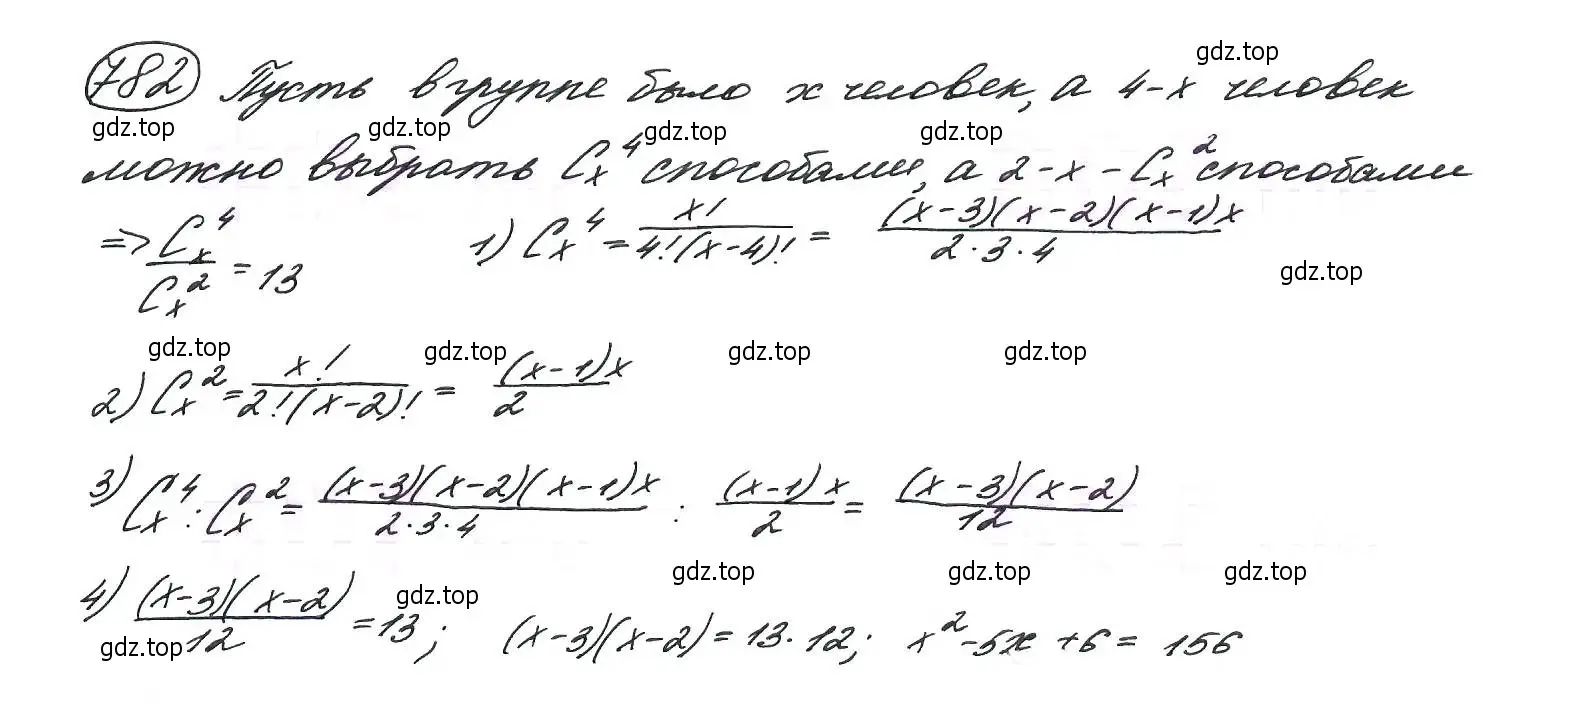 gdz.top
782 Пусть в группе было x человек, а 4-x человек
gdz.top gdz.top gdz.top gdz.top
можно выбрать C_x^4 способами, а 2-x - C_x^2 способами
=> C_x^4 / C_x^2 = 13 1) C_x^4 = x! / 4!(x-4)! = (x-3)(x-2)(x-1)x / 2·3·4
gdz.top
gdz.top gdz.top gdz.top gdz.top
2) C_x^2 = x! / 2!(x-2)! = (x-1)x / 2
3) C_x^4 : C_x^2 = (x-3)(x-2)(x-1)x / 2·3·4 : (x-1)x / 2 = (x-3)(x-2) / 12
gdz.top gdz.top gdz.top
gdz.top
4) (x-3)(x-2) / 12 = 13; (x-3)(x-2) = 13·12; x^2 - 5x + 6 = 156
gdz.top